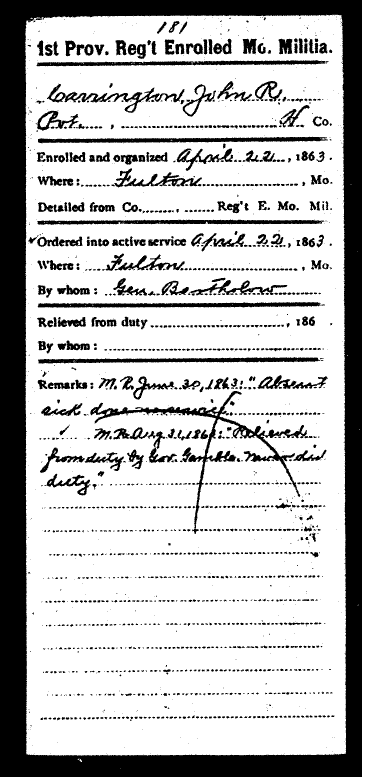 181
1st Prov. Reg't Enrolled Mo. Militia.
Carrington, John R.
Pvt. , H Co.
Enrolled and organized April 22, 1863.
Where: Fulton, Mo.
Detailed from Co. , Reg't E. Mo. Mil.
Ordered into active service April 22, 1863.
Where: Fulton, Mo.
By whom: Gen. Bartholow
Relieved from duty , 186 .
By whom:
Remarks: M. R. June 30, 1863: "Absent
sick
M. R. Aug 31, 1863: "Relieved
from duty by Gov. Gamble. Never did
duty."